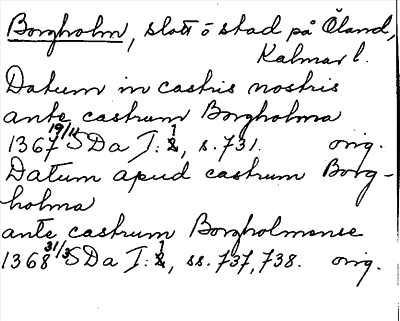 Borgholm, slott o stad på Öland,
Kalmar l.
Datum in castris nostris
ante castrum Borgholma
1367 19/11 SDa I:1, s. 731. orig.
Datum apud castrum Borg-
holma
ante castrum Borgholmense
1368 31/3 SDa I:1, ss. 737, 738. orig.